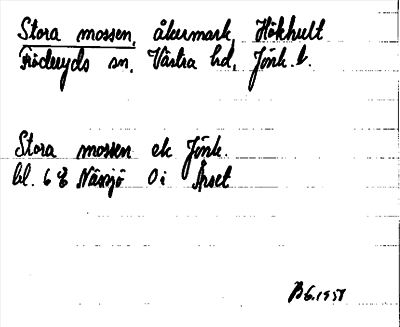 Stora mossen, åkermark, Hökhult
Fröderyds sn, Västra hd, Jönk. l.
Stora mossen ek Jönk.
bl. 6 E Nässjö 0 i Året
BG. 1951